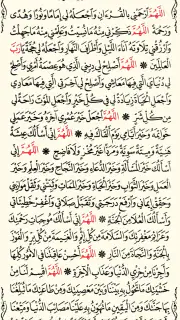 اللَّهُمَّ ارْحَمْنِي بِالْقُرْءَانِ وَاجْعَلْهُ لِي إِمَامًا وَنُورًا وَهُدًى
وَرَحْمَةً * اللَّهُمَّ ذَكِّرْنِي مِنْهُ مَا نَسِيتُ وَعَلِّمْنِي مِنْهُ مَا جَهِلْتُ
وَارْزُقْنِي تِلَاوَتَهُ آنَاءَ اللَّيْلِ وَأَطْرَافَ النَّهَارِ وَاجْعَلْهُ لِي حُجَّةً يَا رَبَّ
الْعَالَمِينَ * اللَّهُمَّ أَصْلِحْ لِي دِينِي الَّذِي هُوَ عِصْمَةُ أَمْرِي وَأَصْلِحْ
لِي دُنْيَايَ الَّتِي فِيهَا مَعَاشِي وَأَصْلِحْ لِي آخِرَتِي الَّتِي فِيهَا مَعَادِي
وَاجْعَلِ الْحَيَاةَ زِيَادَةً لِي فِي كُلِّ خَيْرٍ وَاجْعَلِ الْمَوْتَ رَاحَةً لِي
مِنْ كُلِّ شَرٍّ * اللَّهُمَّ اجْعَلْ خَيْرَ عُمْرِي آخِرَهُ وَخَيْرَ عَمَلِي
خَوَاتِمَهُ وَخَيْرَ أَيَّامِي يَوْمَ أَلْقَاكَ فِيهِ * اللَّهُمَّ إِنِّي أَسْأَلُكَ عِيشَةً
هَنِيَّةً وَمِيتَةً سَوِيَّةً وَمَرَدًّا غَيْرَ مُخْزٍ وَلَا فَاضِحٍ * اللَّهُمَّ إِنِّي
أَسْأَلُكَ خَيْرَ الْمَسْأَلَةِ وَخَيْرَ الدُّعَاءِ وَخَيْرَ النَّجَاحِ وَخَيْرَ الْعِلْمِ وَخَيْرَ
الْعَمَلِ وَخَيْرَ الثَّوَابِ وَخَيْرَ الْحَيَاةِ وَخَيْرَ الْمَمَاتِ وَثَبِّتْنِي وَثَقِّلْ مَوَازِينِي
وَحَقِّقْ إِيمَانِي وَارْفَعْ دَرَجَتِي وَتَقَبَّلْ صَلَاتِي وَاغْفِرْ خَطِيئَاتِي
وَأَسْأَلُكَ الْعُلَا مِنَ الْجَنَّةِ * اللَّهُمَّ إِنِّي أَسْأَلُكَ مُوجِبَاتِ رَحْمَتِكَ
وَعَزَائِمَ مَغْفِرَتِكَ وَالسَّلَامَةَ مِنْ كُلِّ إِثْمٍ وَالْغَنِيمَةَ مِنْ كُلِّ بِرٍّ وَالْفَوْزَ
بِالْجَنَّةِ وَالنَّجَاةَ مِنَ النَّارِ * اللَّهُمَّ أَحْسِنْ عَاقِبَتَنَا فِي الْأُمُورِ كُلِّهَا
وَأَجِرْنَا مِنْ خِزْيِ الدُّنْيَا وَعَذَابِ الْآخِرَةِ * اللَّهُمَّ اقْسِمْ لَنَا مِنْ
خَشْيَتِكَ مَا تَحُولُ بِهِ بَيْنَنَا وَبَيْنَ مَعْصِيَتِكَ وَمِنْ طَاعَتِكَ مَا تُبَلِّغُنَا
بِهَا جَنَّتَكَ وَمِنَ الْيَقِينِ مَا تُهَوِّنُ بِهِ عَلَيْنَا مَصَائِبَ الدُّنْيَا وَمَتِّعْنَا